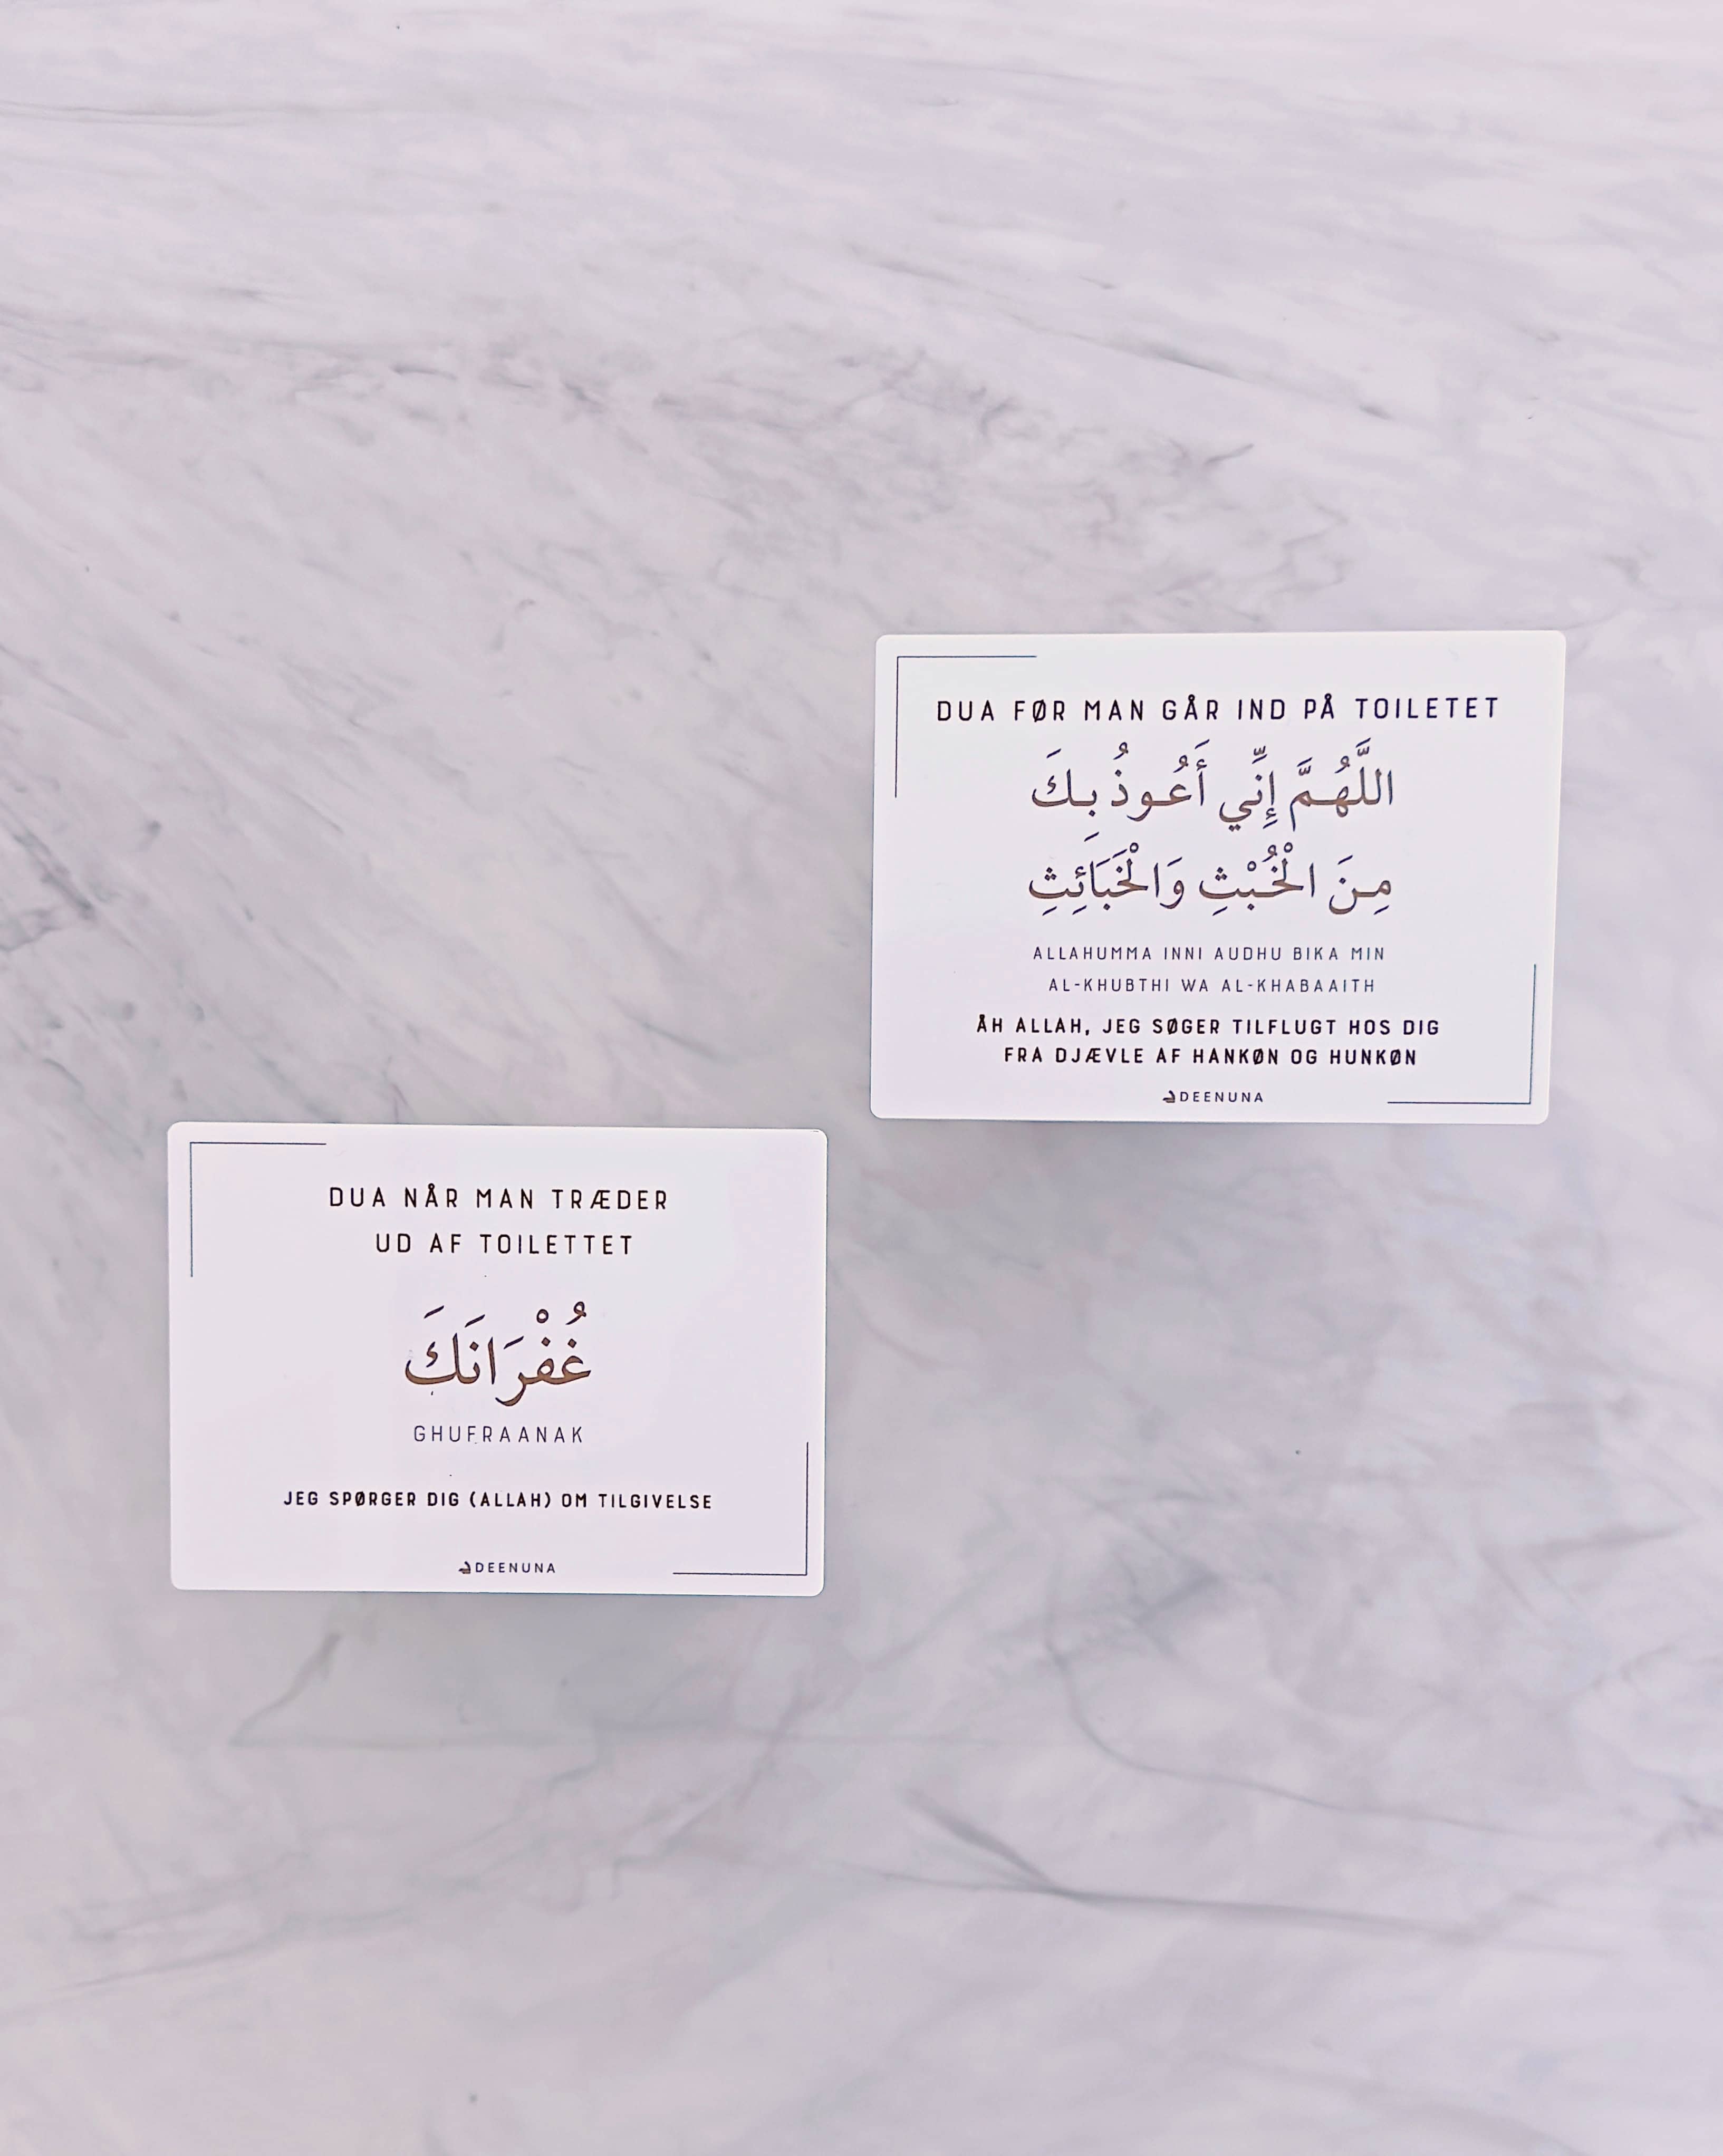 DUA FØR MAN GÅR IND PÅ TOILETET
اللَّهُمَّ إِنِّي أَعُوذُ بِكَ
مِنَ الْخُبْثِ وَالْخَبَائِثِ
ALLAHUMMA INNI AUDHU BIKA MIN
AL-KHUBTHI WA AL-KHABAAITH
ÅH ALLAH, JEG SØGER TILFLUGT HOS DIG
FRA DJÆVLE AF HANKØN OG HUNKØN
DEENUNA
DUA NÅR MAN TRÆDER
UD AF TOILETTET
غُفْرَانَكَ
GHUFRAANAK
JEG SPØRGER DIG (ALLAH) OM TILGIVELSE
DEENUNA